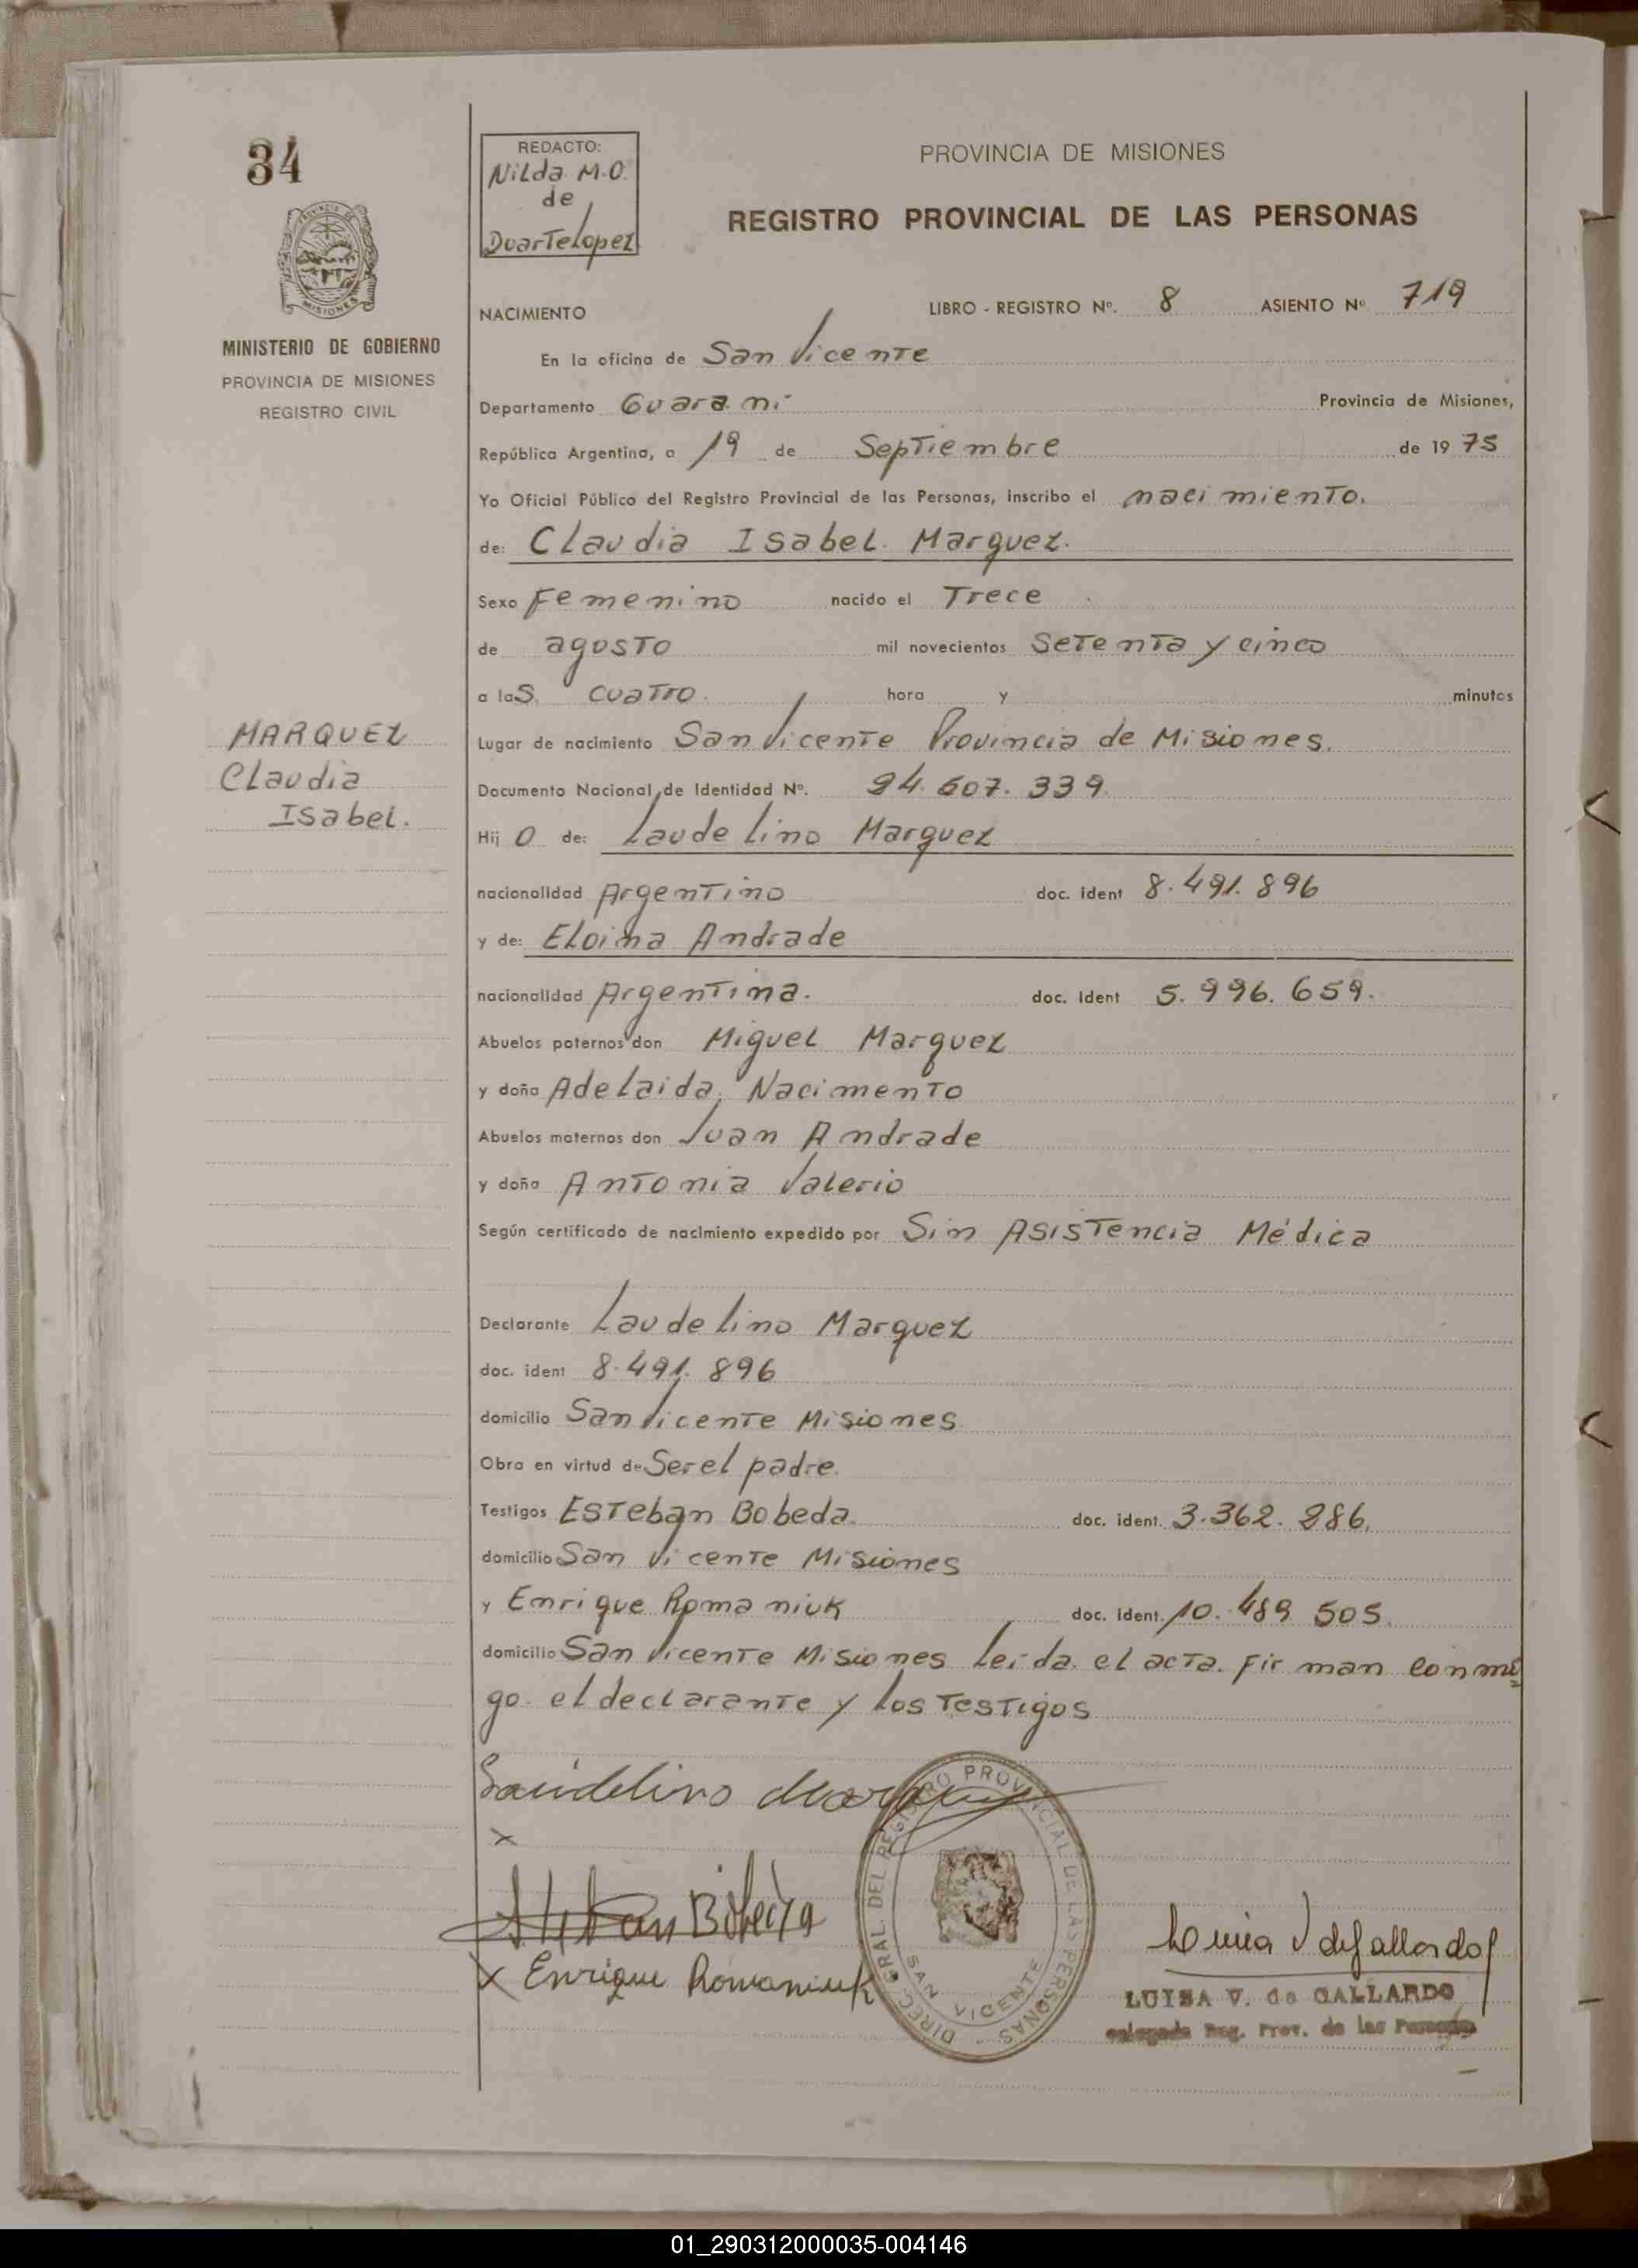 34
REDACTO:
Nilda M.O.
de
Duarte Lopez
PROVINCIA DE MISIONES
REGISTRO PROVINCIAL DE LAS PERSONAS
MINISTERIO DE GOBIERNO
PROVINCIA DE MISIONES
REGISTRO CIVIL
NACIMIENTO LIBRO - REGISTRO Nº. 8 ASIENTO Nº 719
En la oficina de San Vicente
Departamento Guarani Provincia de Misiones,
República Argentina, a 19 de Septiembre de 1975
Yo Oficial Público del Registro Provincial de las Personas, inscribo el nacimiento.
de: Claudia Isabel Marquez.
Sexo Femenino nacido el Trece
de agosto mil novecientos Setenta y cinco
a las cuatro. hora y minutos
MARQUEZ
Claudia
Isabel.
Lugar de nacimiento San Vicente Provincia de Misiones.
Documento Nacional de Identidad Nº. 24.607.339
Hij o de: Laudelino Marquez
nacionalidad Argentino doc. ident 8.491.896
y de: Eloima Andrade
nacionalidad Argentina. doc. Ident 5.996.659.
Abuelos paternos don Miguel Marquez
y doña Adelaida Nacimento
Abuelos maternos don Juan Andrade
y doña Antonia Valerio
Según certificado de nacimiento expedido por Sin Asistencia Médica
Declarante Laudelino Marquez
doc. ident 8.491.896
domicilio San Vicente Misiones
Obra en virtud de Ser el padre.
Testigos Esteban Bobeda. doc. ident. 3.362.286.
domicilio San Vicente Misiones
y Enrique Romaniuk doc. ident. 10.489.505.
domicilio San Vicente Misiones Leida el acta. Firman conmi
go el declarante y los Testigos
Laudelino Marquez
x
Esteban Bobeda
x Enrique Romaniuk
DIREC. GRAL. DEL REGISTRO PROVINCIAL DE LAS PERSONAS -
SAN VICENTE
Luisa V de Gallardo
LUISA V. de GALLARDO
Delegada Reg. Prov. de las Personas
01_290312000035-004146